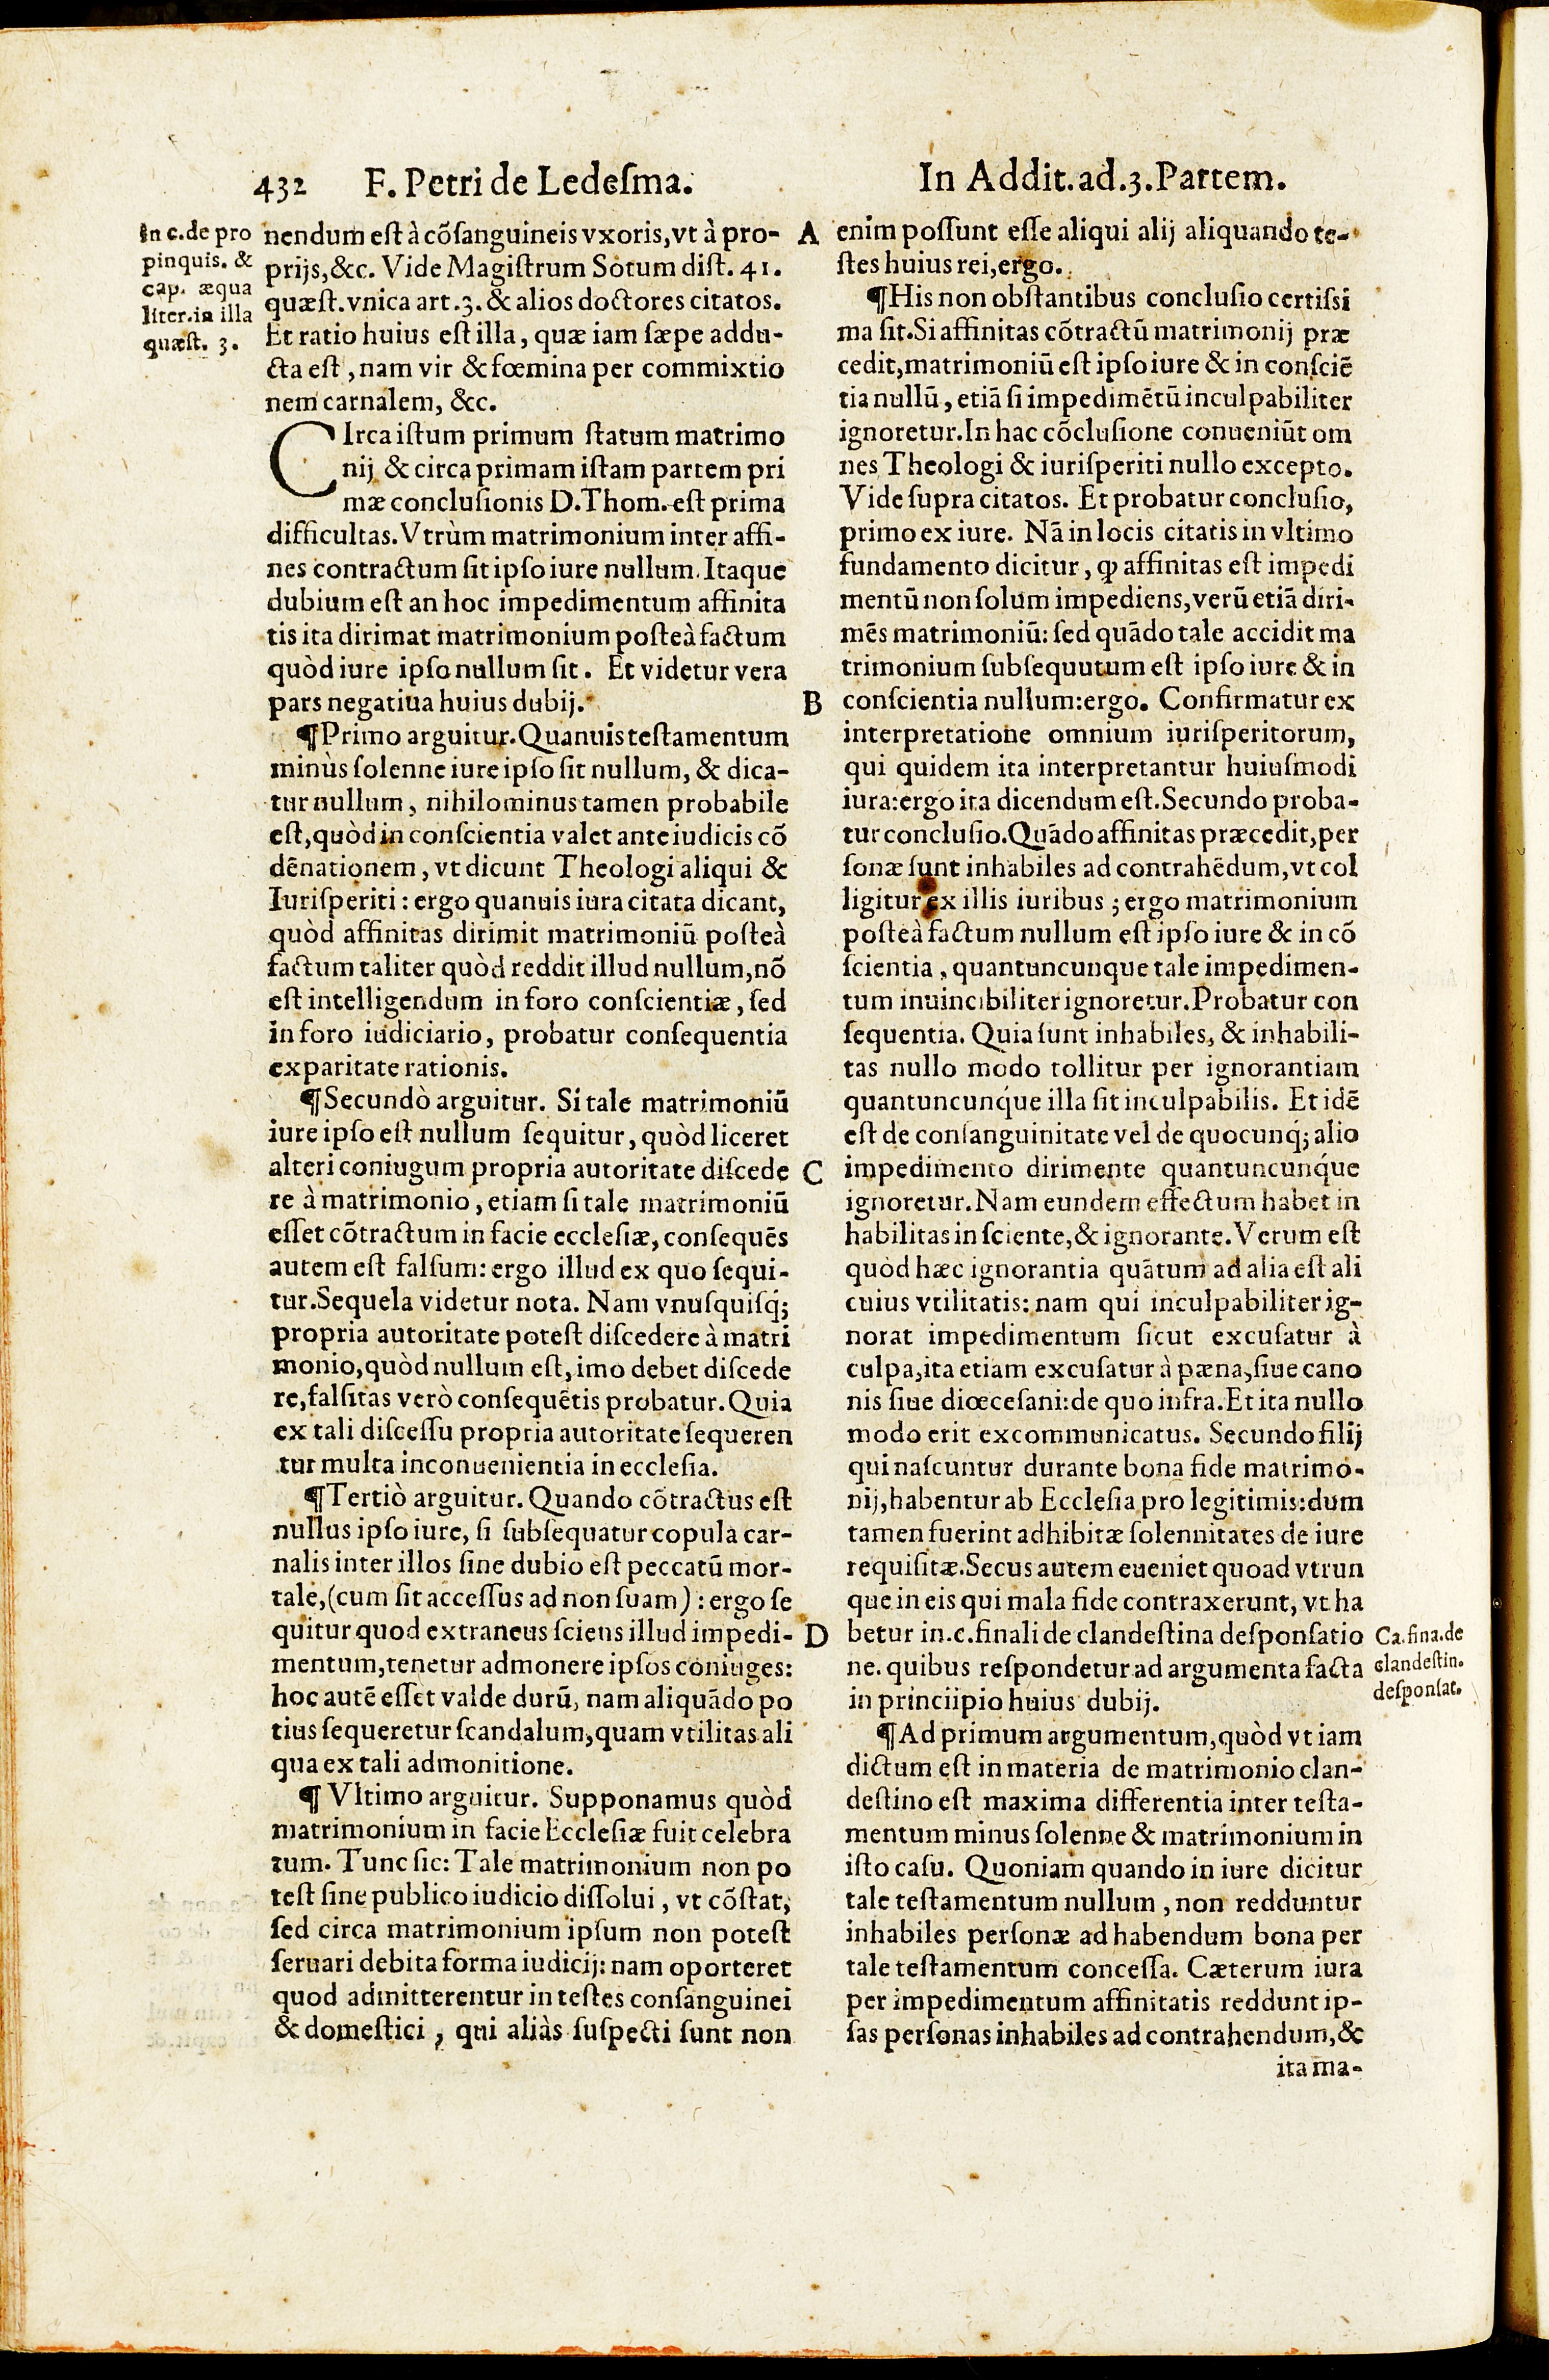 432 F. Petri de Ledeſma.
In c.de pro
pinquis. &
cap. æqua
liter.in illa
quæſt. 3.
nendum eſt à cõſanguineis vxoris, vt à pro-
prijs, &c. Vide Magiſtrum Sotum diſt. 41.
quæſt. vnica art. 3. & alios doctores citatos.
Et ratio huius eſt illa, quæ iam ſæpe addu-
cta eſt, nam vir & fœmina per commixtio
nem carnalem, &c.
CIrca iſtum primum ſtatum matrimo
nij & circa primam iſtam partem pri
mæ concluſionis D. Thom. eſt prima
difficultas. Vtrùm matrimonium inter affi-
nes contractum ſit ipſo iure nullum. Itaque
dubium eſt an hoc impedimentum affinita
tis ita dirimat matrimonium poſteà factum
quòd iure ipſo nullum ſit. Et videtur vera
pars negatiua huius dubij.
¶Primo arguitur. Quanuis teſtamentum
minùs ſolenne iure ipſo ſit nullum, & dica-
tur nullum, nihilominus tamen probabile
eſt, quòd in conſcientia valet ante iudicis cõ
dẽnationem, vt dicunt Theologi aliqui &
Iuriſperiti: ergo quanuis iura citata dicant,
quòd affinitas dirimit matrimoniũ poſteà
factum taliter quòd reddit illud nullum, nõ
eſt intelligendum in foro conſcientiæ, ſed
in foro iudiciario, probatur conſequentia
ex paritate rationis.
¶Secundò arguitur. Si tale matrimoniũ
iure ipſo eſt nullum ſequitur, quòd liceret
alteri coniugum propria autoritate diſcede
re à matrimonio, etiam ſi tale matrimoniũ
eſſet cõtractum in facie eccleſiæ, conſequẽs
autem eſt falſum: ergo illud ex quo ſequi-
tur. Sequela videtur nota. Nam vnuſquiſq́;
propria autoritate poteſt diſcedere à matri
monio, quòd nullum eſt, imo debet diſcede
re, falſitas verò conſequẽtis probatur. Quia
ex tali diſceſſu propria autoritate ſequeren
tur multa inconuenientia in eccleſia.
¶Tertiò arguitur. Quando cõtractus eſt
nullus ipſo iure, ſi ſubſequatur copula car-
nalis inter illos ſine dubio eſt peccatũ mor-
tale, (cum ſit acceſſus ad non ſuam): ergo ſe
quitur quod extraneus ſciens illud impedi-
mentum, tenetur admonere ipſos coniuges:
hoc autẽ eſſet valde durũ, nam aliquãdo po
tius ſequeretur ſcandalum, quam vtilitas ali
qua ex tali admonitione.
¶ Vltimo arguitur. Supponamus quòd
matrimonium in facie Eccleſiæ fuit celebra
tum. Tunc ſic: Tale matrimonium non po
teſt ſine publico iudicio diſſolui, vt cõſtat,
ſed circa matrimonium ipſum non poteſt
ſeruari debita forma iudicij: nam oporteret
quod admitterentur in teſtes conſanguinei
& domeſtici, qui aliàs ſuſpecti ſunt non
A
B
C
D
In Addit. ad. 3. Partem.
enim poſſunt eſſe aliqui alij aliquando te-
ſtes huius rei, ergo.
¶His non obſtantibus concluſio certiſsi
ma ſit. Si affinitas cõtractũ matrimonij præ
cedit, matrimoniũ eſt ipſo iure & in conſciẽ
tia nullũ, etiã ſi impedimẽtũ inculpabiliter
ignoretur. In hac cõcluſione conueniũt om
nes Theologi & iuriſperiti nullo excepto.
Vide ſupra citatos. Et probatur concluſio,
primo ex iure. Nã in locis citatis in vltimo
fundamento dicitur, ꝙ affinitas eſt impedi
mentũ non ſolum impediens, verũ etiã diri-
mẽs matrimoniũ: ſed quãdo tale accidit ma
trimonium ſubſequutum eſt ipſo iure & in
conſcientia nullum: ergo. Confirmatur ex
interpretatione omnium iuriſperitorum,
qui quidem ita interpretantur huiuſmodi
iura: ergo ita dicendum eſt. Secundo proba-
tur concluſio. Quãdo affinitas præcedit, per
ſonæ ſunt inhabiles ad contrahẽdum, vt col
ligitur ex illis iuribus; ergo matrimonium
poſteà factum nullum eſt ipſo iure & in cõ
ſcientia, quantuncunque tale impedimen-
tum inuincibiliter ignoretur. Probatur con
ſequentia. Quia ſunt inhabiles, & inhabili-
tas nullo modo tollitur per ignorantiam
quantuncunq́ue illa ſit inculpabilis. Et idẽ
eſt de conſanguinitate vel de quocunq́; alio
impedimento dirimente quantuncunq́ue
ignoretur. Nam eundem effectum habet in
habilitas in ſciente, & ignorante. Verum eſt
quòd hæc ignorantia quãtum ad alia eſt ali
cuius vtilitatis: nam qui inculpabiliter ig-
norat impedimentum ſicut excuſatur à
culpa, ita etiam excuſatur à pæna, ſiue cano
nis ſiue diœceſani: de quo infra. Et ita nullo
modo erit excommunicatus. Secundo filij
qui naſcuntur durante bona fide matrimo-
nij, habentur ab Eccleſia pro legitimis: dum
tamen fuerint adhibitæ ſolennitates de iure
requiſitæ. Secus autem eueniet quoad vtrun
que in eis qui mala fide contraxerunt, vt ha
betur in. c. finali de clandeſtina deſponſatio
ne. quibus reſpondetur ad argumenta facta
in princiipio huius dubij.
¶Ad primum argumentum, quòd vt iam
dictum eſt in materia de matrimonio clan-
deſtino eſt maxima differentia inter teſta-
mentum minus ſolenne & matrimonium in
iſto caſu. Quoniam quando in iure dicitur
tale teſtamentum nullum, non redduntur
inhabiles perſonæ ad habendum bona per
tale teſtamentum conceſſa. Cæterum iura
per impedimentum affinitatis reddunt ip-
ſas perſonas inhabiles ad contrahendum, &
ita ma-
Ca. fina. de
clandeſtin.
deſponſat.